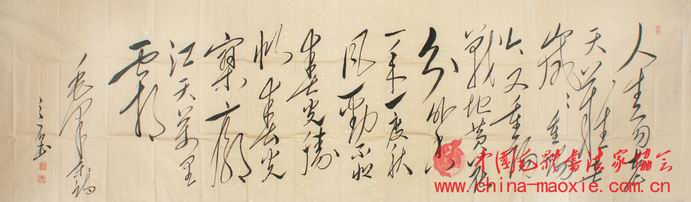 人生易老
天難老
歲々重陽
今又重陽
戰地黄花
分外香
一年一度秋
風勁不似
春光勝
似春光
寥廓
江天萬里
霜
毛澤東詞
中国毛体书法家协会
www.china-maoxie.com